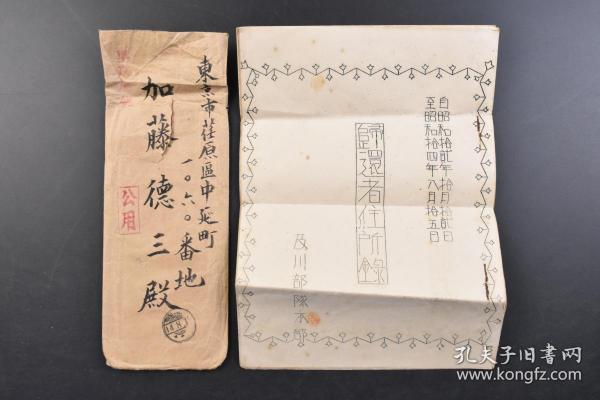 東京市荏原區中延町
一〇六〇番地
加藤德三殿
公用
自昭和拾貳年拾月拾貳日
至昭和拾四年八月拾五日
歸還者住所錄
及川部隊本部
孔夫子旧书网
www.kongfz.com